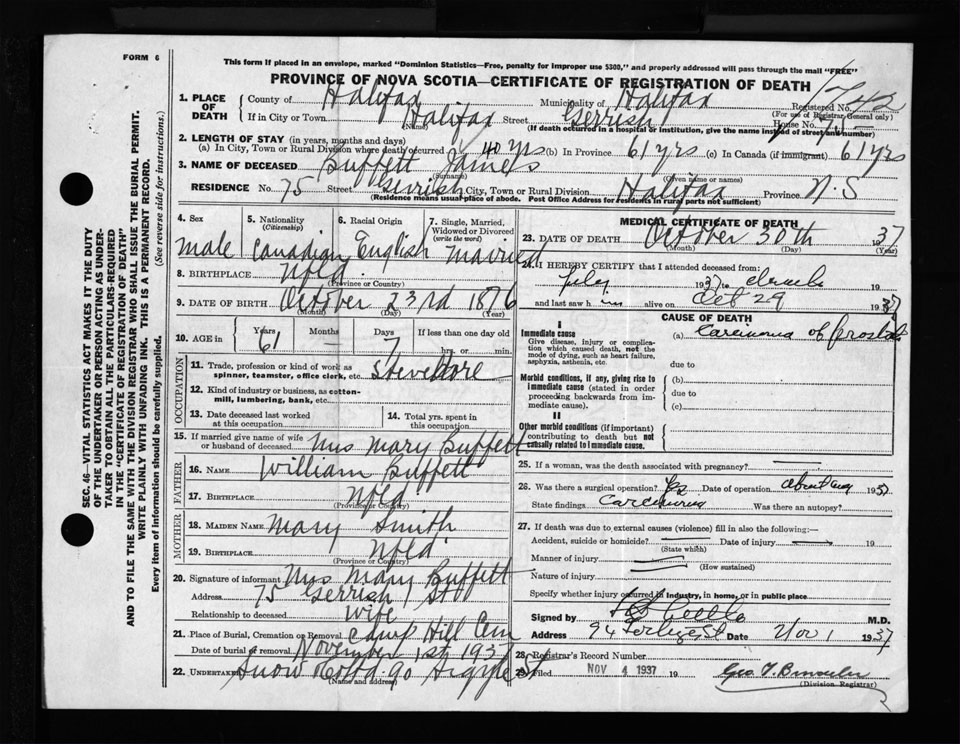 FORM 6
This form if placed in an envelope, marked "Dominion Statistics—Free, penalty for improper use $300," and properly addressed will pass through the mail "FREE"
PROVINCE OF NOVA SCOTIA—CERTIFICATE OF REGISTRATION OF DEATH
1. PLACE OF DEATH
County of Halifax Municipality of Halifax Registered No.
(For use of Registrar General only)
If in City or Town Halifax Street Gerrish House No. 75
(Name) (If death occurred in a hospital or institution, give the name instead of street and number)
2. LENGTH OF STAY (in years, months and days)
(a) In City, Town or Rural Division where death occurred 40 yrs (b) In Province 61 yrs (c) In Canada (if immigrant) 61 yrs
3. NAME OF DECEASED Buffett James
(Surname) (Given name or names)
RESIDENCE No. 75 Street Gerrish City, Town or Rural Division Halifax Province N.S
(Residence means usual place of abode. Post Office Address for residents in rural parts not sufficient)
4. Sex male
5. Nationality (Citizenship) Canadian
6. Racial Origin English
7. Single, Married, Widowed or Divorced (write the word) Married
8. BIRTHPLACE Nfld.
(Province or Country)
9. DATE OF BIRTH October 23rd 1876
(Month) (Day) (Year)
10. AGE in Years 61 Months — Days 7 If less than one day old hrs. or min.
OCCUPATION
11. Trade, profession or kind of work as spinner, teamster, office clerk, etc. Stevedore
12. Kind of industry or business, as cotton-mill, lumbering, bank, etc.
13. Date deceased last worked at this occupation
14. Total yrs. spent in this occupation
15. If married give name of wife or husband of deceased Mrs Mary Buffett
FATHER
16. NAME William Buffett
17. BIRTHPLACE Nfld
(Province or Country)
MOTHER
18. MAIDEN NAME Mary Smith
19. BIRTHPLACE Nfld.
(Province or Country)
20. Signature of informant Mrs Mary Buffett
Address 75 Gerrish St
Relationship to deceased Wife
21. Place of Burial, Cremation or Removal Camp Hill Cem
Date of burial or removal November 1st 1937
22. UNDERTAKER Snow & Co Ltd 90 Argyle St
(Name and address)
MEDICAL CERTIFICATE OF DEATH
23. DATE OF DEATH October 30th 1937
(Month) (Day) (Year)
24. I HEREBY CERTIFY that I attended deceased from:
July 1937 to
and last saw him alive on Oct 29 1937
CAUSE OF DEATH
I
Immediate cause
Give disease, injury or complication which caused death, not the mode of dying, such as heart failure, asphyxia, asthenia, etc.
(a) Carcinoma of prostate
due to
Morbid conditions, if any, giving rise to immediate cause (stated in order proceeding backwards from immediate cause).
(b)
due to
(c)
II
Other morbid conditions (if important) contributing to death but not causally related to immediate cause.
25. If a woman, was the death associated with pregnancy?
26. Was there a surgical operation? Yes Date of operation about Aug 193
State findings Carcinoma Was there an autopsy?
27. If death was due to external causes (violence) fill in also the following:—
Accident, suicide or homicide? Date of injury 19
(State which)
Manner of injury
(How sustained)
Nature of injury
Specify whether injury occurred in industry, in home, or in public place
Signed by M.D.
Address 94 St Date Nov 1 1937
28. Registrar's Record Number
29. Filed NOV 4 1937 19
(Division Registrar)
SEC. 46—VITAL STATISTICS ACT MAKES IT THE DUTY
OF THE UNDERTAKER OR PERSON ACTING AS UNDER-
TAKER TO OBTAIN ALL THE PARTICULARS REQUIRED
IN THE "CERTIFICATE OF REGISTRATION OF DEATH"
AND TO FILE THE SAME WITH THE DIVISION REGISTRAR WHO SHALL ISSUE THE BURIAL PERMIT.
WRITE PLAINLY WITH UNFADING INK. THIS IS A PERMANENT RECORD.
Every item of information should be carefully supplied. (See reverse side for instructions.)